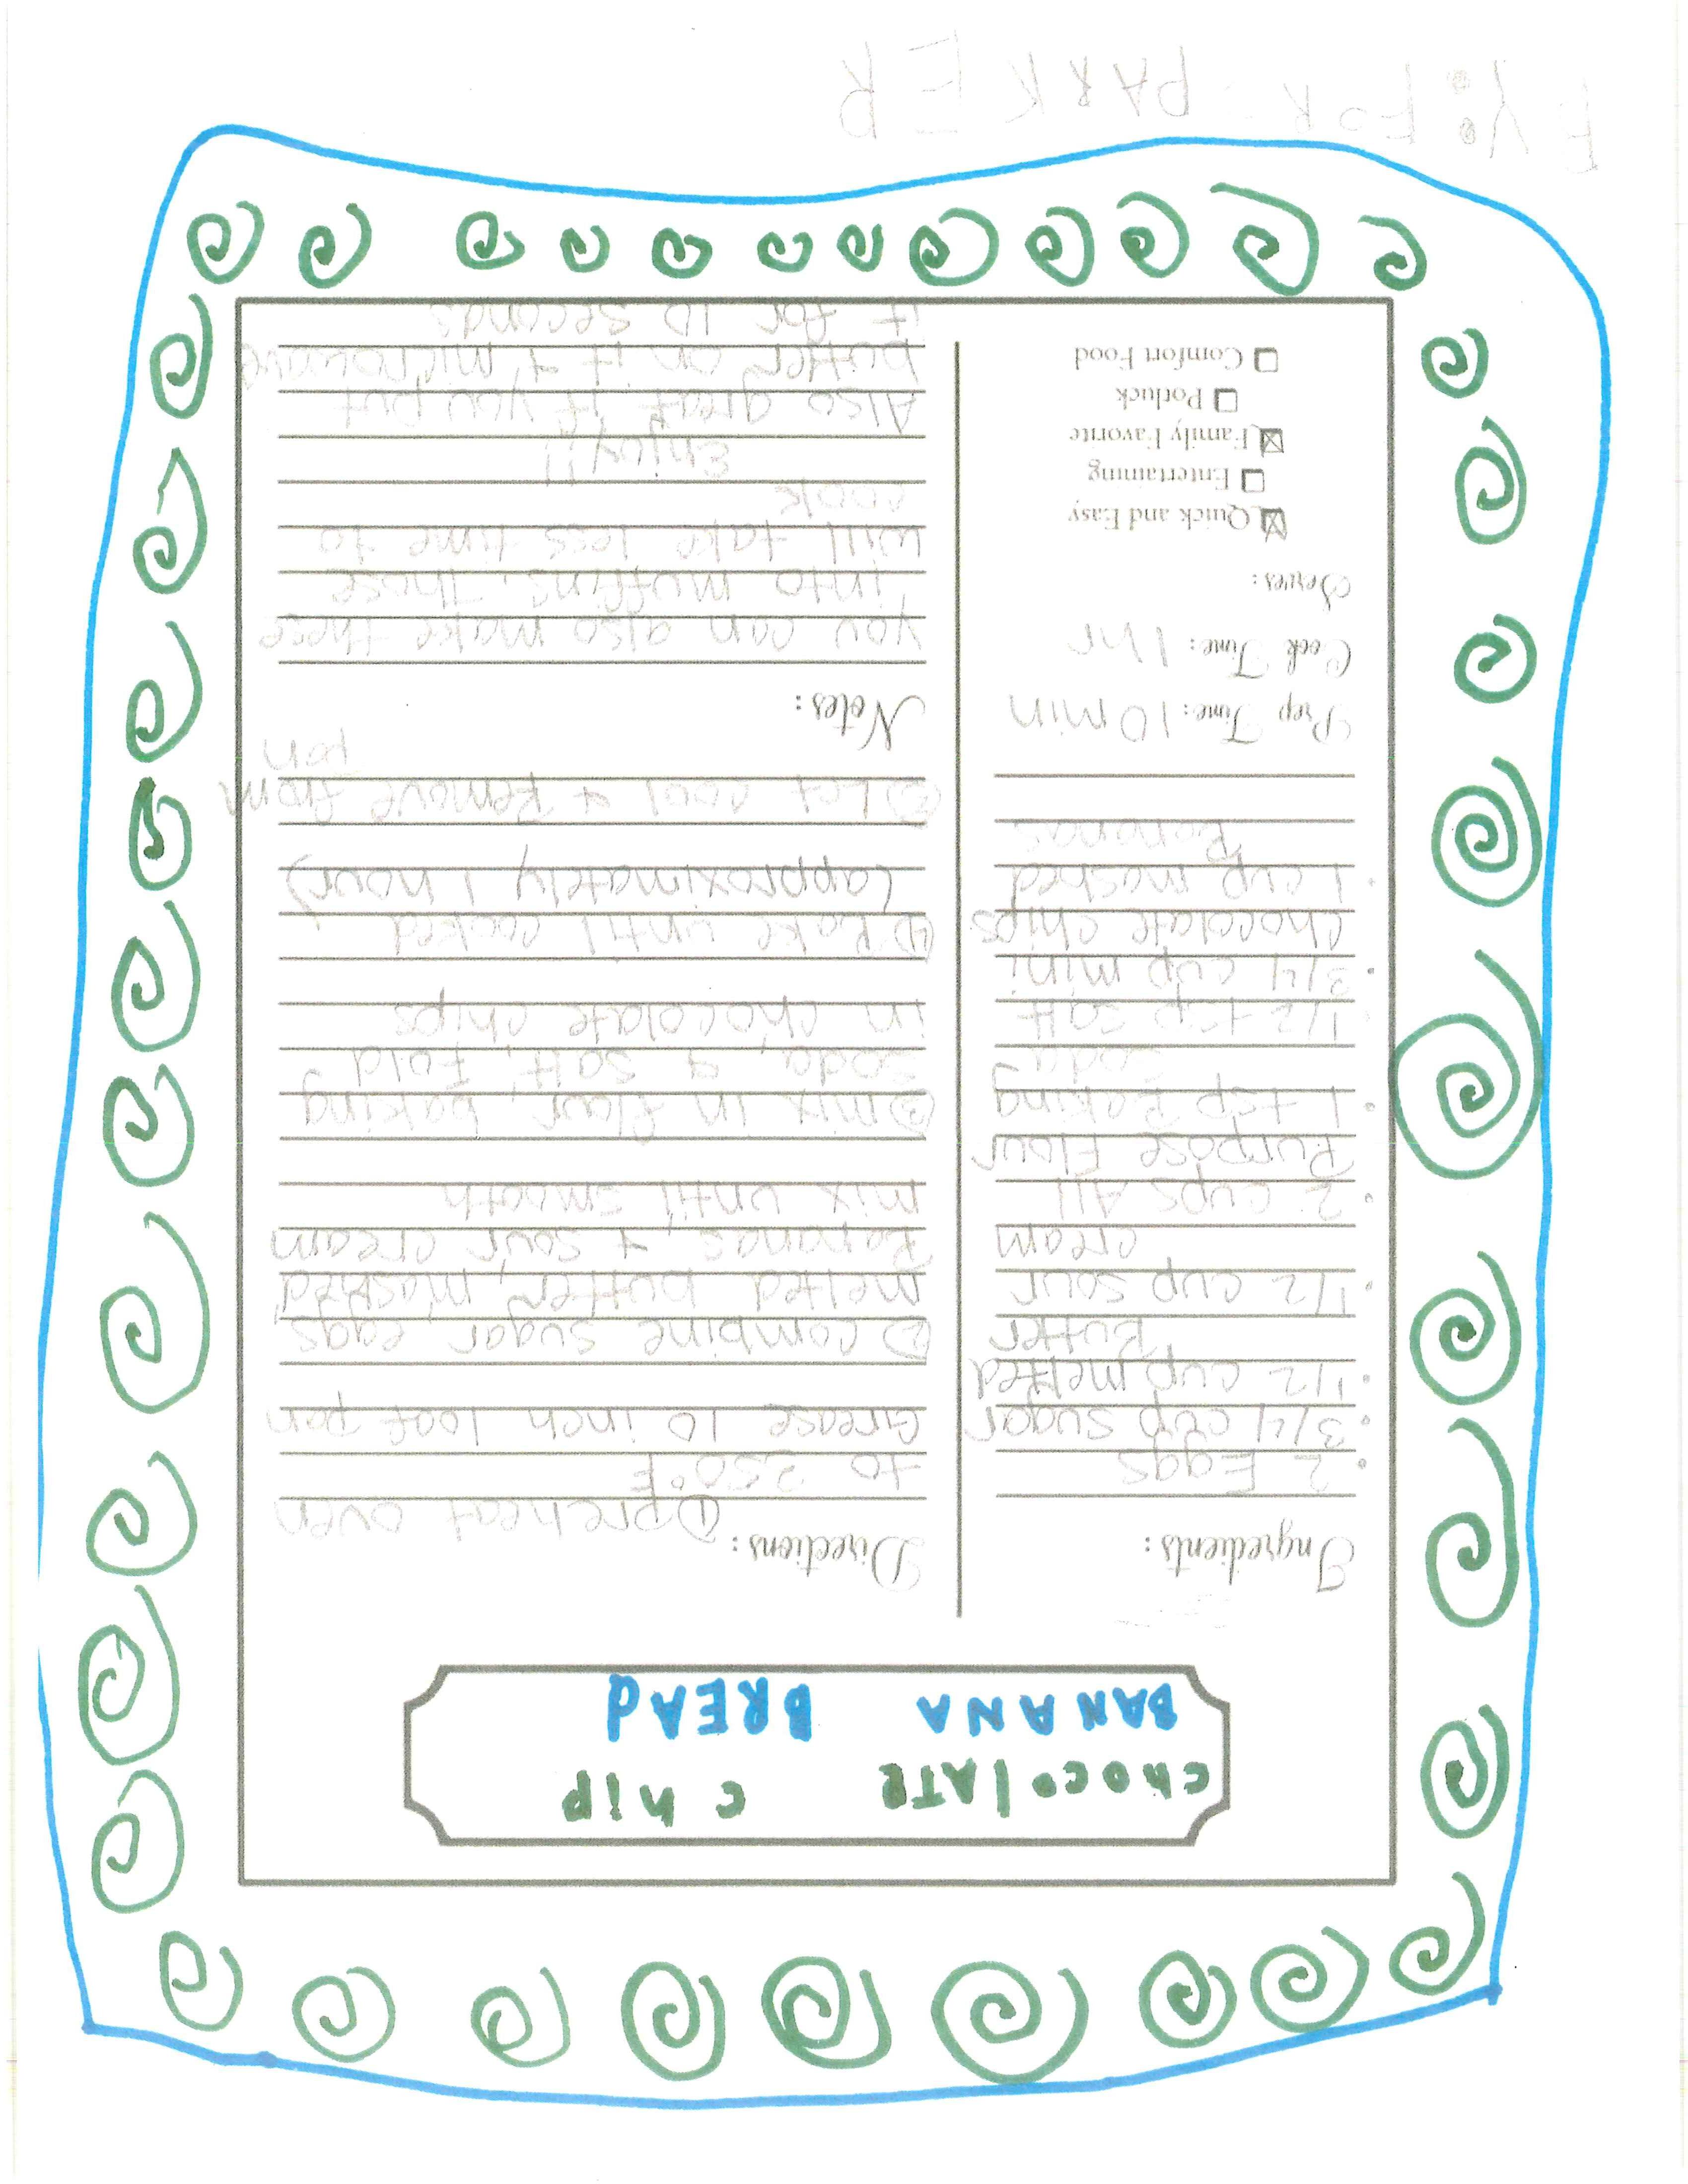 chocolATE chip
BANANA BREAd
Ingredients:
• 2 Eggs
• 3/4 cup sugar
• 1/2 cup melted
Butter
• 1/2 cup sour
cream
• 2 cups All
Purpose Flour
• 1 tsp Baking
Soda
• 1/2 tsp salt
• 3/4 cup mini
chocolate chips
• 1 cup mashed
Bananas
Prep Time: 10 min
Cook Time: 1 hr
Serves:
☒ Quick and Easy
☐ Entertaining
☒ Family Favorite
☐ Potluck
☐ Comfort Food
Directions: ① preheat oven
to 350°F
Grease 10 inch loaf pan
② combine sugar, eggs,
melted butter, mashed
Bananas, + sour cream
mix until smooth
③ mix in flour, baking
soda, & salt, Fold
in chocolate chips
④ Bake until cooked
(approximately 1 hour)
⑤ Let cool + Remove from
pan
Notes:
you can also make these
into muffins. Those
will take less time to
cook
Enjoy!!
Also great if you put
butter on it + microwave
it for 10 seconds
FOR PARKER